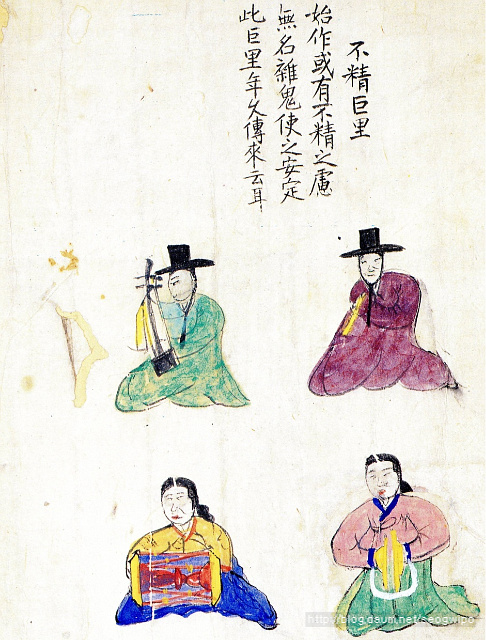 不精巨里
始作或有不精之慮
無名雜鬼使之安定
此巨里年久傳來云耳
http://blog.daum.net/seogwipo